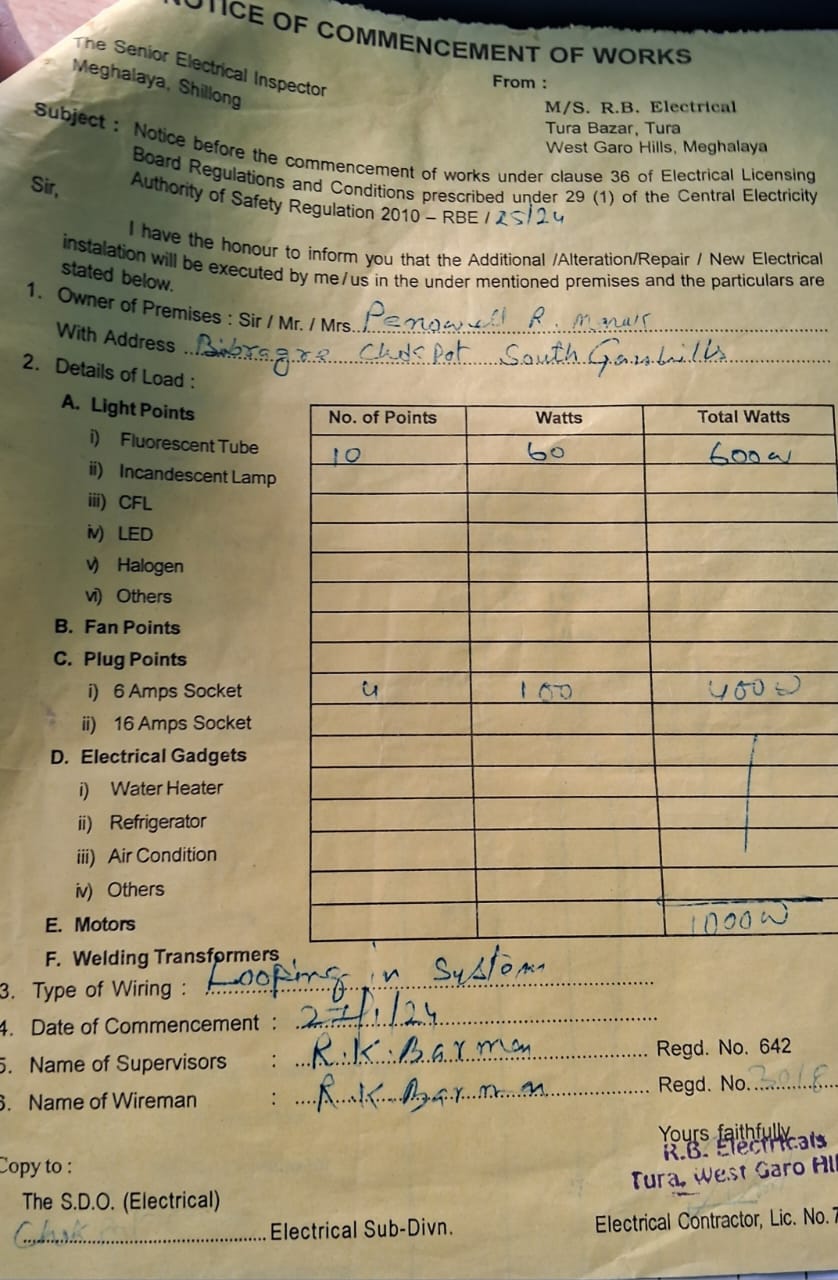 NOTICE OF COMMENCEMENT OF WORKS
The Senior Electrical Inspector
Meghalaya, Shillong
From :
M/S. R.B. Electrical
Tura Bazar, Tura
West Garo Hills, Meghalaya
Subject : Notice before the commencement of works under clause 36 of Electrical Licensing
Board Regulations and Conditions prescribed under 29 (1) of the Central Electricity
Authority of Safety Regulation 2010 – RBE / 25/24
Sir,
I have the honour to inform you that the Additional /Alteration/Repair / New Electrical
instalation will be executed by me/us in the under mentioned premises and the particulars are
stated below.
1. Owner of Premises : Sir / Mr. / Mrs. R.
With Address South
2. Details of Load :
No. of Points Watts Total Watts
A. Light Points
i) Fluorescent Tube 10 60 600 w
ii) Incandescent Lamp
iii) CFL
iv) LED
v) Halogen
vi) Others
B. Fan Points
C. Plug Points
i) 6 Amps Socket 4 100 400 W
ii) 16 Amps Socket
D. Electrical Gadgets
i) Water Heater
ii) Refrigerator
iii) Air Condition
iv) Others
E. Motors 1000 W
F. Welding Transformers
3. Type of Wiring : Looping in System
4. Date of Commencement : 27/1/24
5. Name of Supervisors : R.K. Barman Regd. No. 642
6. Name of Wireman : R.K. Barman Regd. No.
Yours faithfully
R.B. Electricals
Tura, West Garo Hil
Copy to :
The S.D.O. (Electrical)
Electrical Sub-Divn.
Electrical Contractor, Lic. No. 7